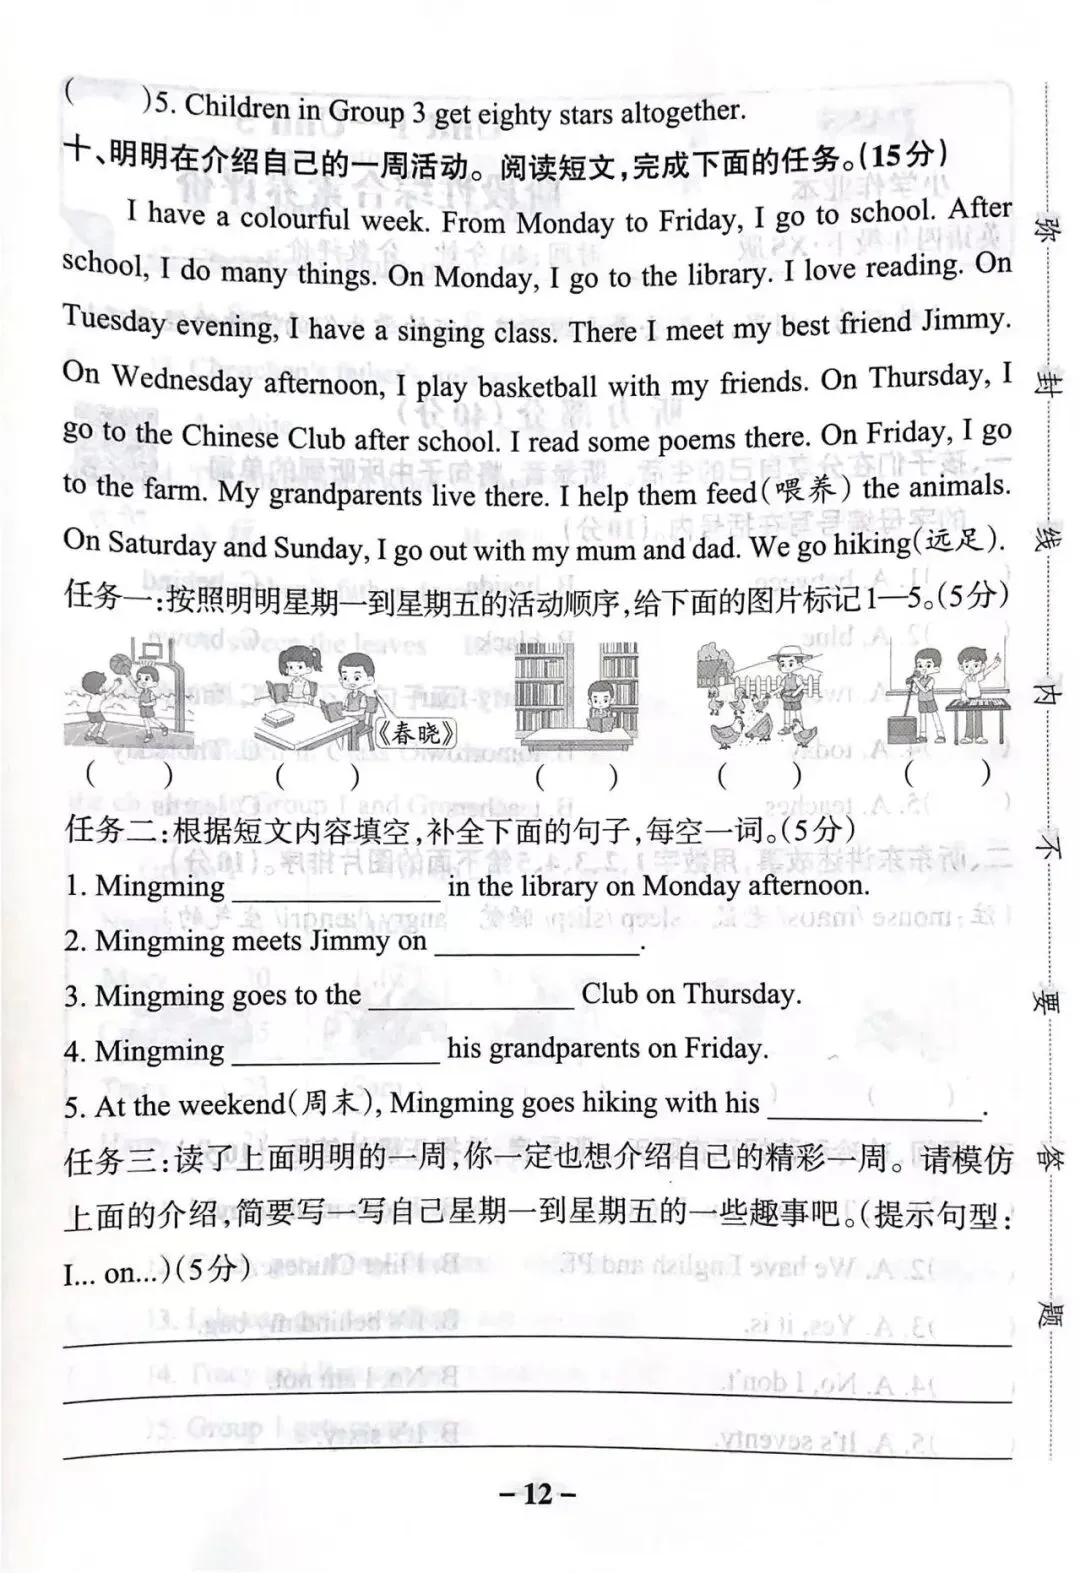 (　　)5. Children in Group 3 get eighty stars altogether.
十、明明在介绍自己的一周活动。阅读短文,完成下面的任务。(15分)
I have a colourful week. From Monday to Friday, I go to school. After
school, I do many things. On Monday, I go to the library. I love reading. On
Tuesday evening, I have a singing class. There I meet my best friend Jimmy.
On Wednesday afternoon, I play basketball with my friends. On Thursday, I
go to the Chinese Club after school. I read some poems there. On Friday, I go
to the farm. My grandparents live there. I help them feed(喂养) the animals.
On Saturday and Sunday, I go out with my mum and dad. We go hiking(远足).
任务一:按照明明星期一到星期五的活动顺序,给下面的图片标记1—5。(5分)
《春晓》
(　　) (　　) (　　) (　　) (　　)
任务二:根据短文内容填空,补全下面的句子,每空一词。(5分)
1. Mingming ________ in the library on Monday afternoon.
2. Mingming meets Jimmy on ________.
3. Mingming goes to the ________ Club on Thursday.
4. Mingming ________ his grandparents on Friday.
5. At the weekend(周末), Mingming goes hiking with his ________.
任务三:读了上面明明的一周,你一定也想介绍自己的精彩一周。请模仿
上面的介绍,简要写一写自己星期一到星期五的一些趣事吧。(提示句型:
I... on...)(5分)
- 12 -
弥
封
线
内
不
要
答
题